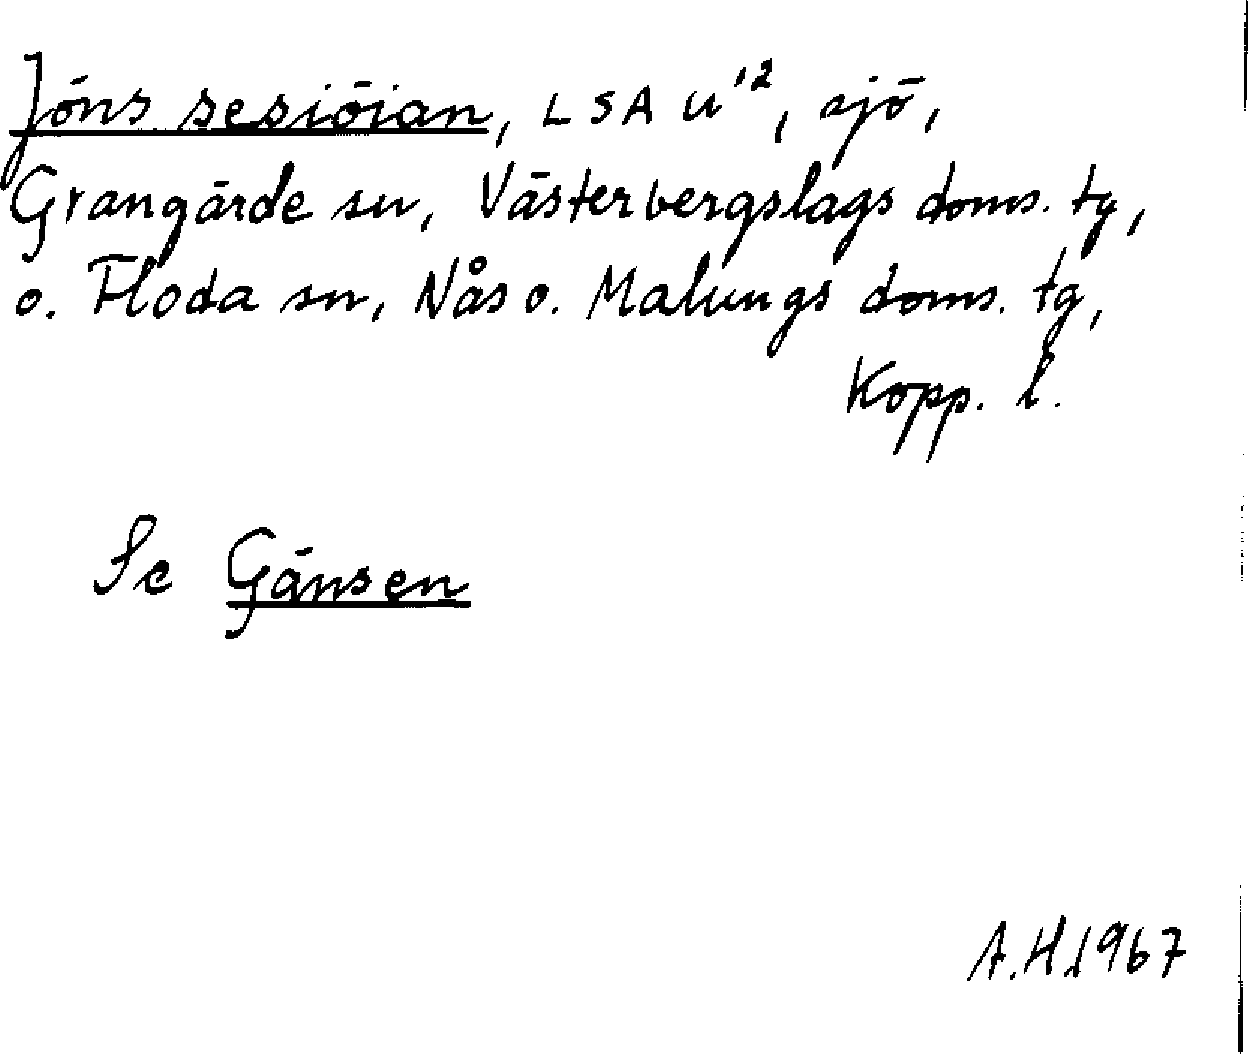 Jöns sesiöian, LSA U'2, sjö,
Grangärde sn, Västerbergslags doms. tg,
o. Floda sn, Nås o. Malungs doms. tg,
Kopp. l.
Se Gänsen
A.H.1967